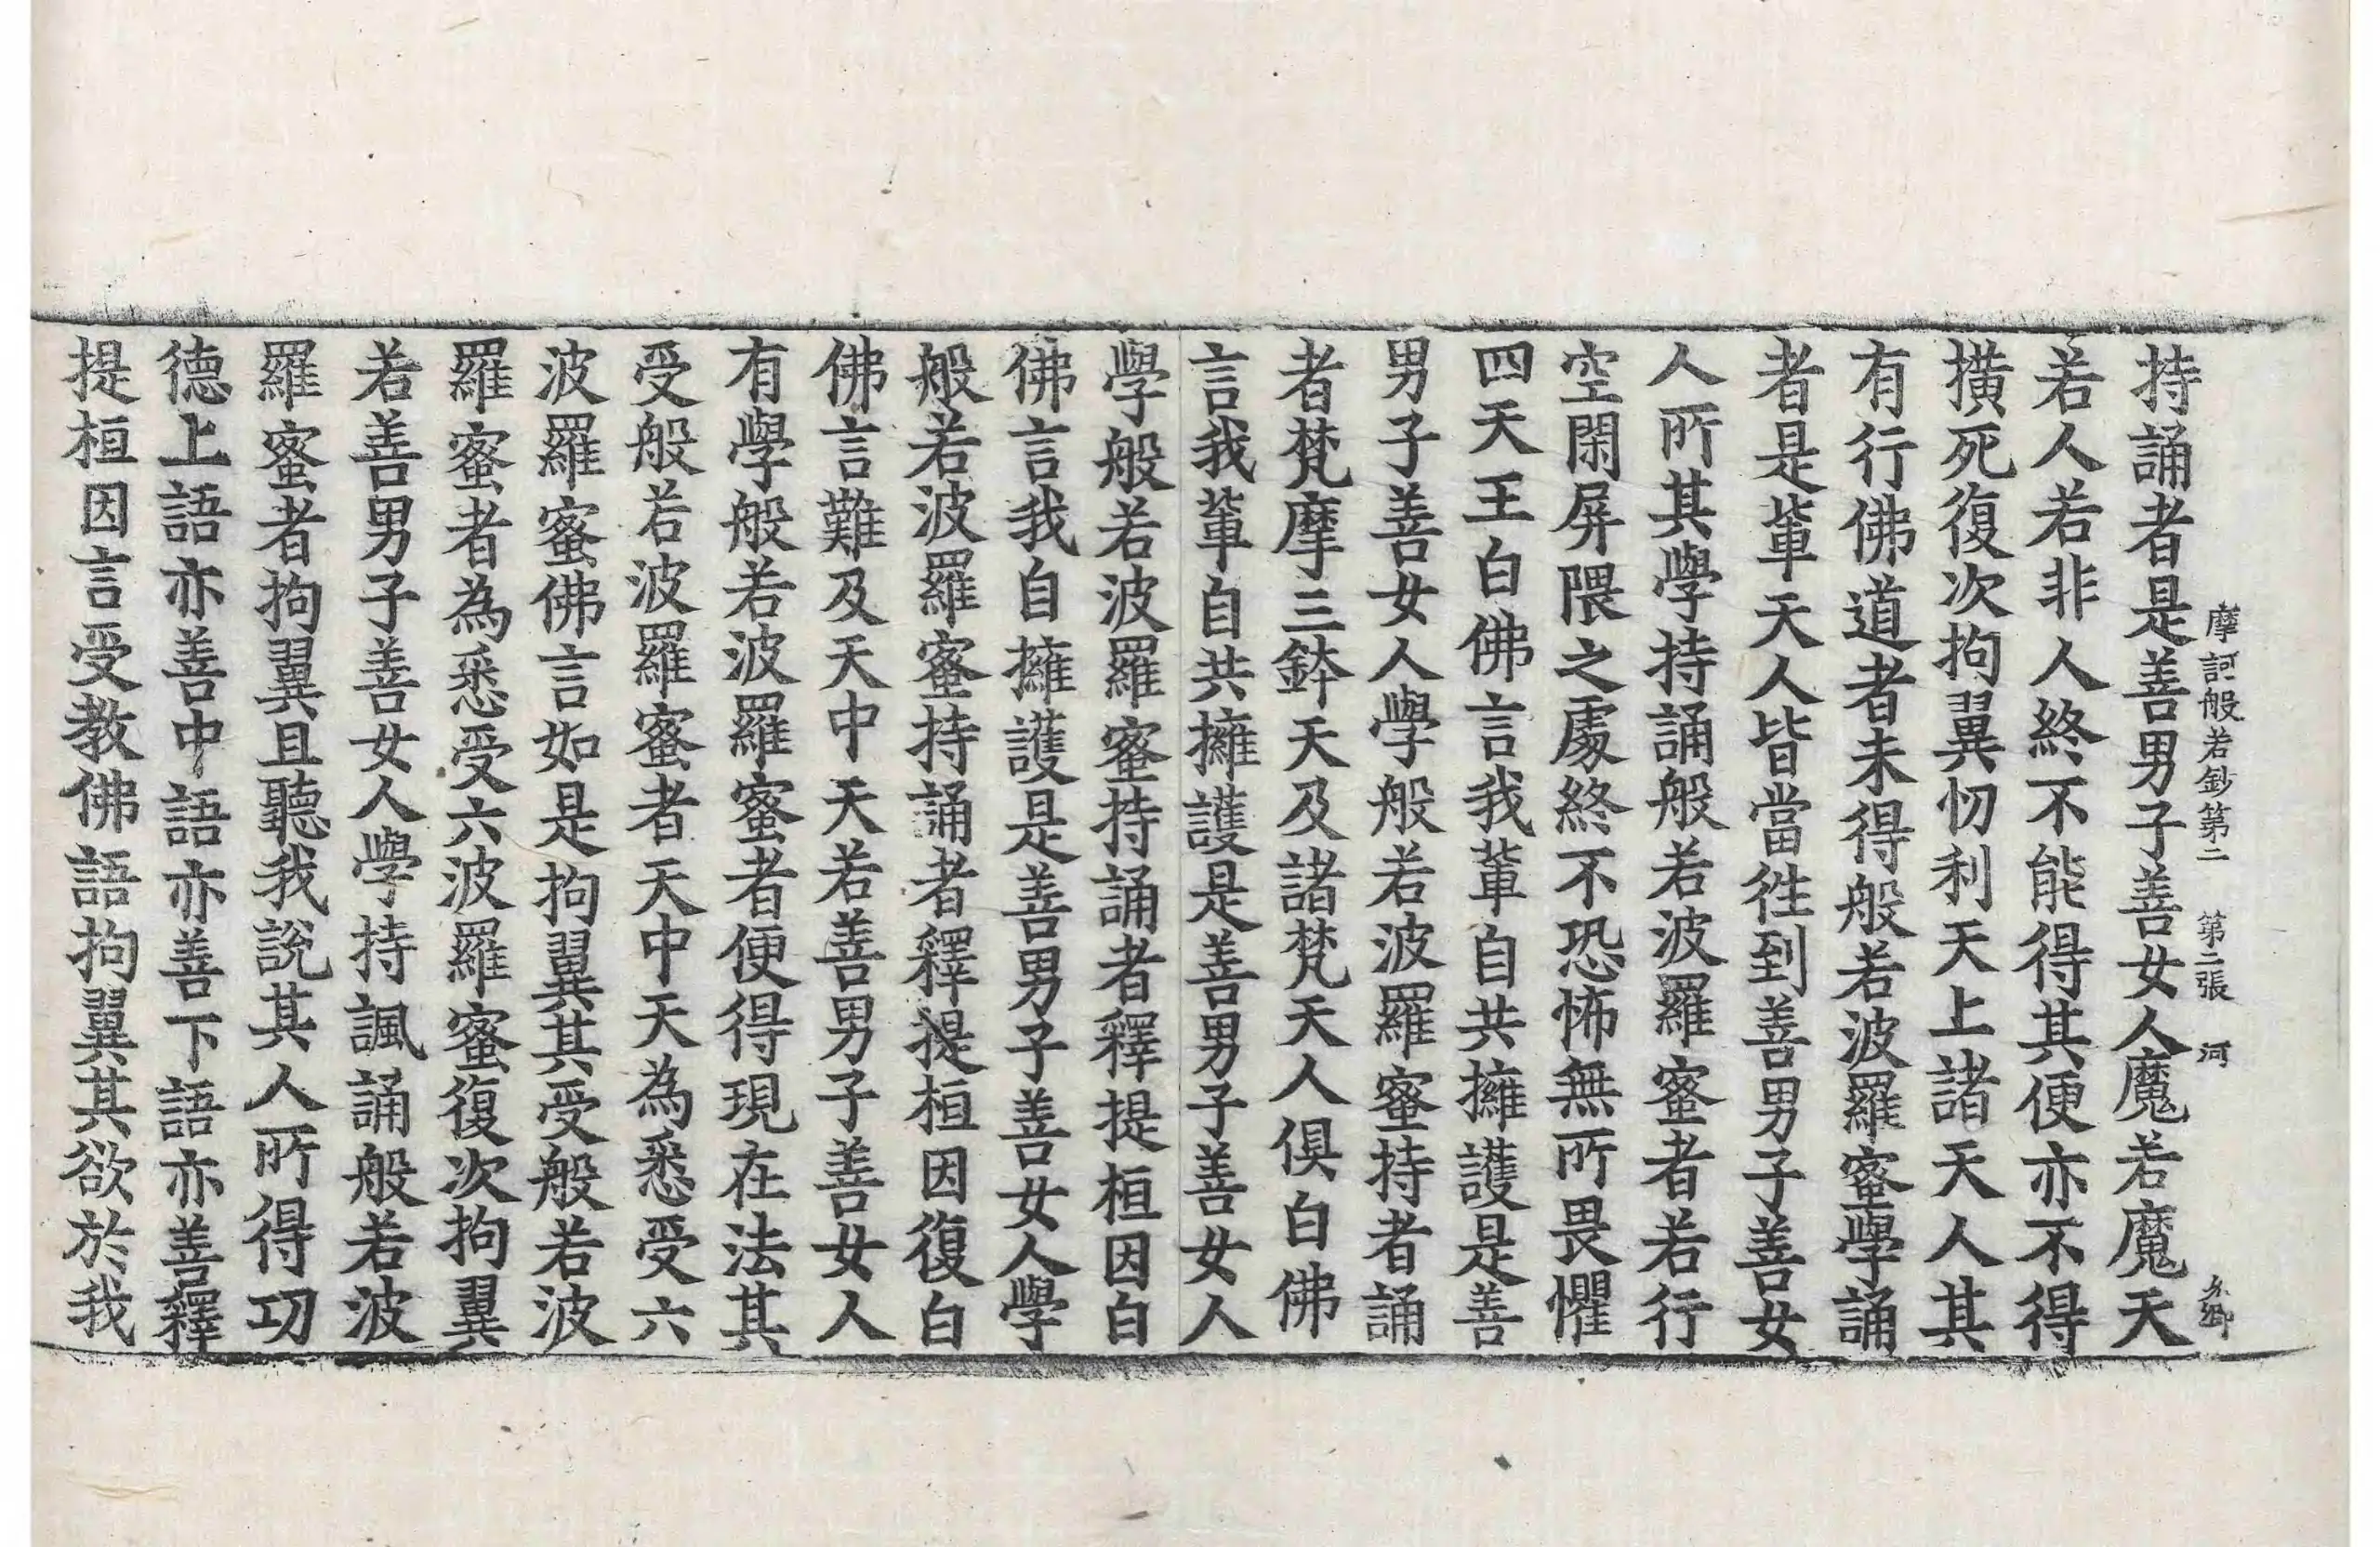 摩訶般若鈔第二　第二張　河
持誦者是善男子善女人魔若魔天
若人若非人終不能得其便亦不得
橫死復次拘翼忉利天上諸天人其
有行佛道者未得般若波羅蜜學誦
者是軰天人皆當徃到善男子善女
人所其學持誦般若波羅蜜者若行
空閑屏隈之處終不恐怖無所畏懼
四天王白佛言我軰自共擁護是善
男子善女人學般若波羅蜜持者誦
者梵摩三鉢天及諸梵天人俱白佛
言我軰自共擁護是善男子善女人
學般若波羅蜜持誦者釋提桓因白
佛言我自擁護是善男子善女人學
般若波羅蜜持誦者釋提桓因復白
佛言難及天中天若善男子善女人
有學般若波羅蜜者便得現在法其
受般若波羅蜜者天中天為悉受六
波羅蜜佛言如是拘翼其受般若波
羅蜜者為悉受六波羅蜜復次拘翼
若善男子善女人學持諷誦般若波
羅蜜者拘翼且聽我說其人所得功
德上語亦善中語亦善下語亦善釋
提桓因言受教佛語拘翼其欲於我